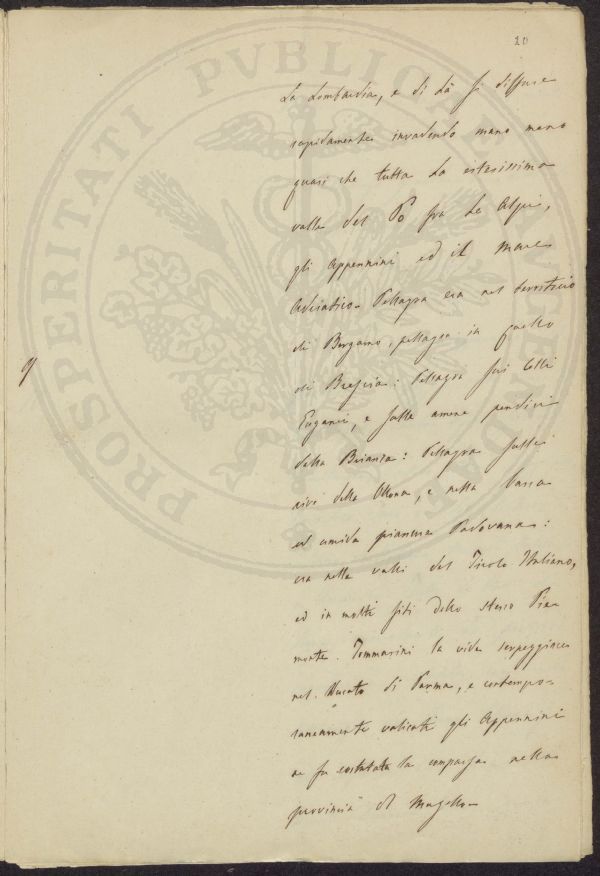 20
La Lombardia, e di là si diffuse
rapidamente invadendo mano mano
quasi che tutta la estesissima
valle del Po fra le Alpi,
gli Appennini ed il Mare
Adriatico. Pellagra era nel territorio
di Bergamo, pellagra in quello
di Brescia: Pellagra sui Colli
Euganei, e sulle amene pendici
della Brianza: Pellagra sulle
rive della Olona, e nella bassa
ed umida pianura Padovana:
era nelle valli del Tirolo Italiano,
ed in molti siti dello stesso Pie
monte. Tommasini la vide serpeggiare
nel Ducato di Parma, e contempo=
raneamente valicati gli Appennini
ne fu constatata la comparsa nella
provincia di Mugello
PROSPERITATI PUBLICAE